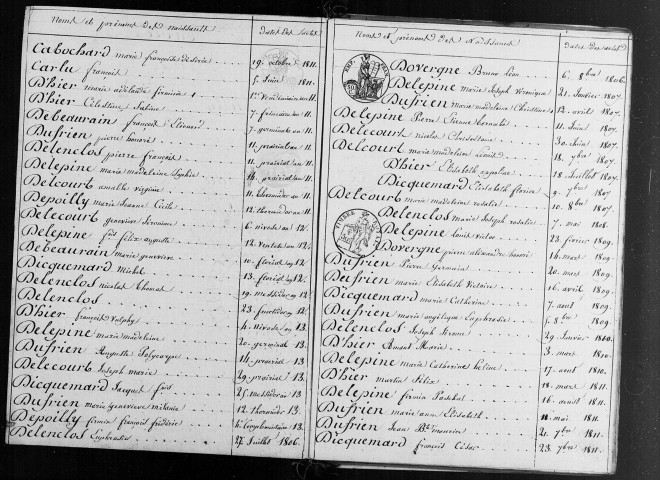 Noms et prénoms des naissants Dates des actes
Cabochard marie françoise désirée 19 octobre 1811.
Carlu françois 5 Juin 1811.
D'hier marie adélaïde 1er Vendémiaire an 11
D'hier Célestine Sabine 7 frimaire an 11
Debeaurain françois 7 germinal an 11
Dufrien pierre honoré 11 prairial an 11.
Delenclos pierre françois 11 prairial an 11
Delepine marie madeleine Sophie 18 prairial an 11.
Delcourt amable virginie 11 thermidor an 11
Depoilly marie Jeanne Cécile 12 thermidor an 11
Delecourt geneviève 6 nivose an 12.
Delepine félix auguste 12 Ventose an 12
Debeaurain marie geneviève 10 floréal an 12
Dicquemard Michel 13 floréal an 12
Delenclos nicolas thomas 19 messidor an 12
Delenclos 23 fructidor an 12
D'hier françois 4 nivose an 13.
Delepine marie madeleine 20 germinal 13.
Dufrien auguste Polycarpe 14 prairial 13.
Delecourt Joseph marie 29 prairial 13.
Dicquemard Jacques 25 messidor 13.
Dufrien marie geneviève mélanie 12 thermidor 13.
Depoilly firmin françois frédéric Complémentaire 13
Delenclos Euphrasie 27 Juillet 1806.
Noms et prénoms des Naissants Dates des actes
Dovergne Bruno Léon 6 8bre 1806.
Delepine marie Joseph Véronique 21 Janvier 1807.
Dufrien marie madeleine Christine 12 avril 1807.
Delepine Pierre Etienne 11 Juin 1807.
Delecourt nicolas 30 Juin 1807.
Delcourt marie madeleine 18 7bre 1807.
D'hier Elisabeth 18 Juillet 1807.
Dicquemard Elisabeth florine 9 7bre 1807.
Delecourt marie madeleine rosalie 10 8bre 1807.
Delenclos marie Joseph rosalie 7 mai 1808.
Delepine Louis victor 23 février 1809.
Dovergne pierre alexandre honoré 14 mars 1809.
Dufrien Pierre Germain 20 mars 1809.
Dufrien marie Elisabeth Victoire 16 avril 1809.
Dicquemard marie Catherine 7 août 1809.
Dufrien marie angélique Euphrosie 5 8bre 1809.
Delenclos Joseph 29 Janvier 1810.
D'hier Amant Marie 3 mars 1810.
Delepine marie Catherine 17 août 1810.
D'hier martin félix 18 mars 1811.
Delepine firmin Paschal 16 août 1811.
Dufrien marie anne Elisabeth mai 1811.
Dufrien Jean Bte 21 7bre 1811.
Dicquemard françois César 23 7bre 1811.